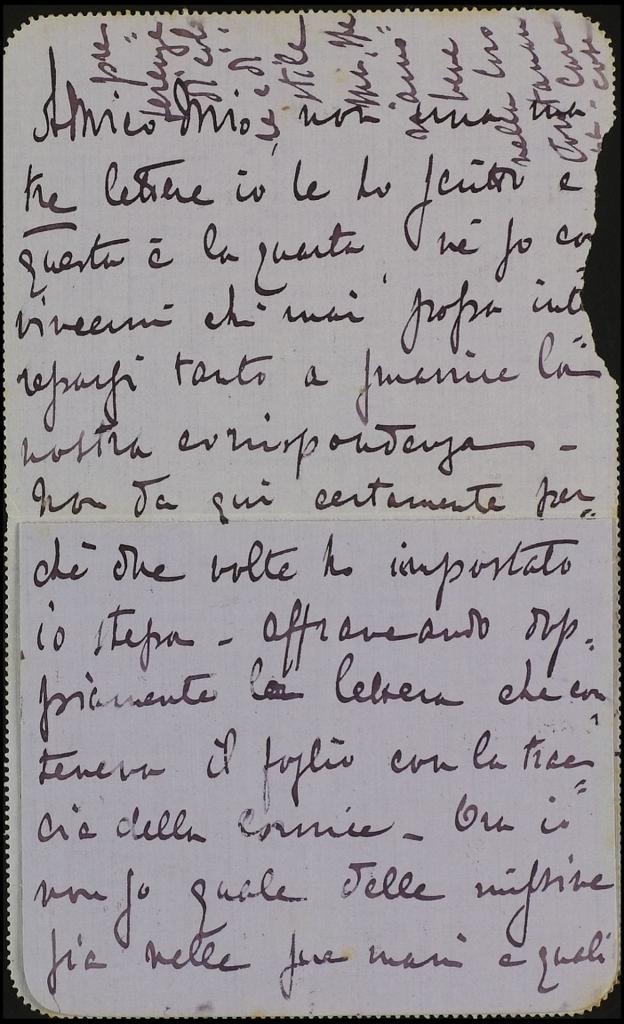 Amico Mio, non una ma
tre lettere io le ho scritto e
questa è la quarta, né so con
vincermi chi mai possa inte
ressarsi tanto a smarrire la
nostra corrispondenza –
Non da qui certamente per=
chè due volte ho impostato
io stessa – affrancando dop=
piamente la lettera che con
teneva il foglio con la trac=
cia della cornice – Ora io
non so quale delle missive
sia nelle sue mani e quali